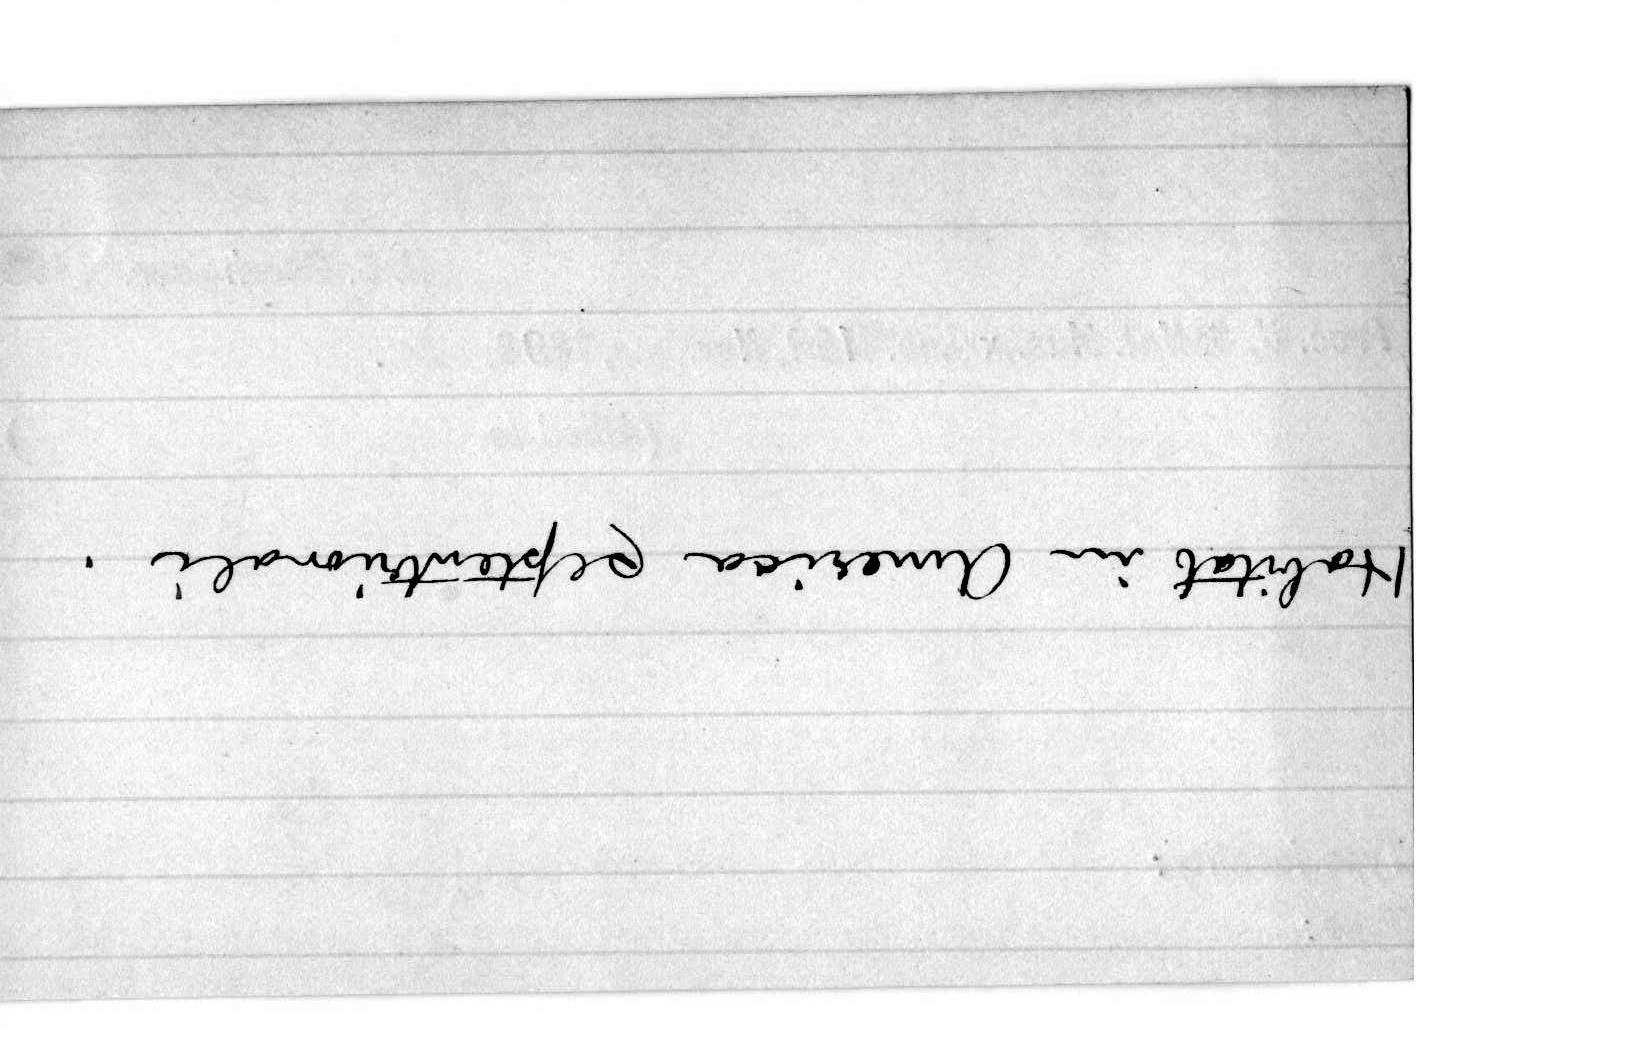 Habitat in America septentrionali.